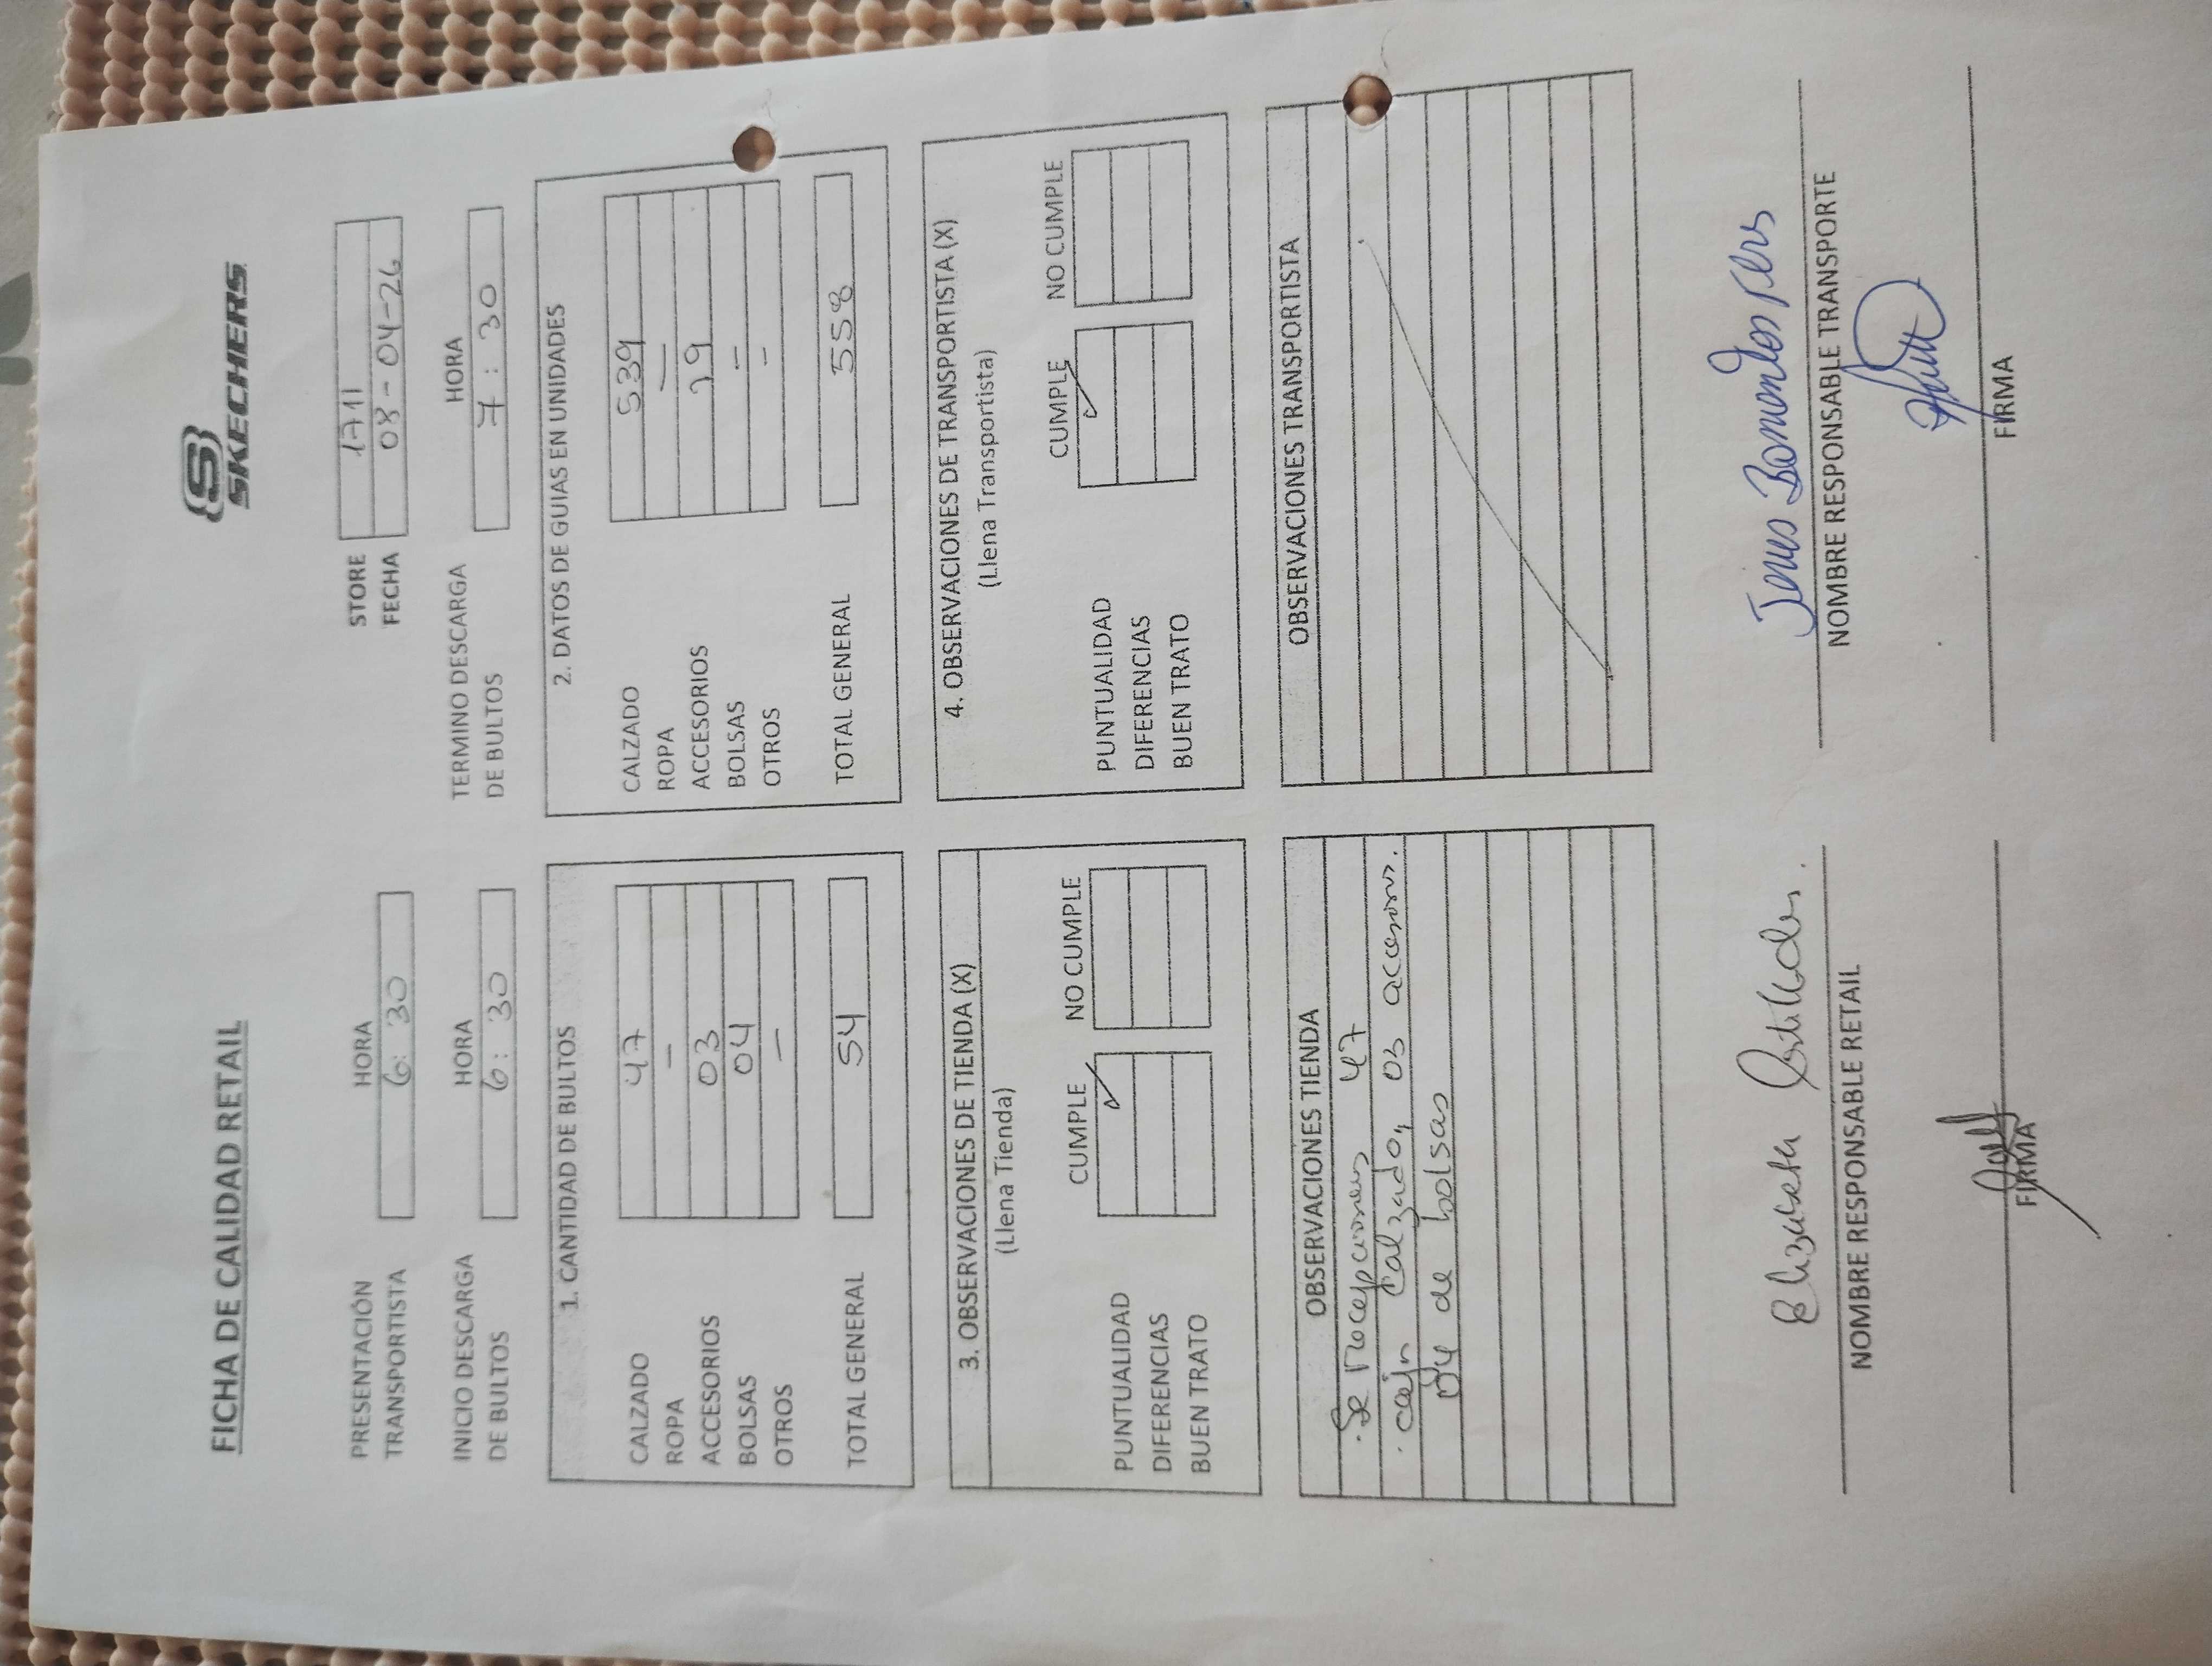 FICHA DE CALIDAD RETAIL
SKECHERS
STORE 1711
PRESENTACIÓN TRANSPORTISTA HORA 6: 30
FECHA 08-04-26
INICIO DESCARGA DE BULTOS HORA 6: 30
TERMINO DESCARGA DE BULTOS HORA 7:30
1. CANTIDAD DE BULTOS
CALZADO 47
ROPA —
ACCESORIOS 03
BOLSAS 04
OTROS —
TOTAL GENERAL 54
2. DATOS DE GUIAS EN UNIDADES
CALZADO 539
ROPA —
ACCESORIOS 19
BOLSAS —
OTROS —
TOTAL GENERAL 558
3. OBSERVACIONES DE TIENDA (X)
(Llena Tienda)
CUMPLE NO CUMPLE
PUNTUALIDAD ✓
DIFERENCIAS
BUEN TRATO
4. OBSERVACIONES DE TRANSPORTISTA (X)
(Llena Transportista)
CUMPLE NO CUMPLE
PUNTUALIDAD ✓
DIFERENCIAS
BUEN TRATO
OBSERVACIONES TIENDA
. Se recepciones 47
. calzado, 03 accesorios.
04 de bolsas
OBSERVACIONES TRANSPORTISTA
Elizabeth
NOMBRE RESPONSABLE RETAIL
FIRMA
NOMBRE RESPONSABLE TRANSPORTE
FIRMA